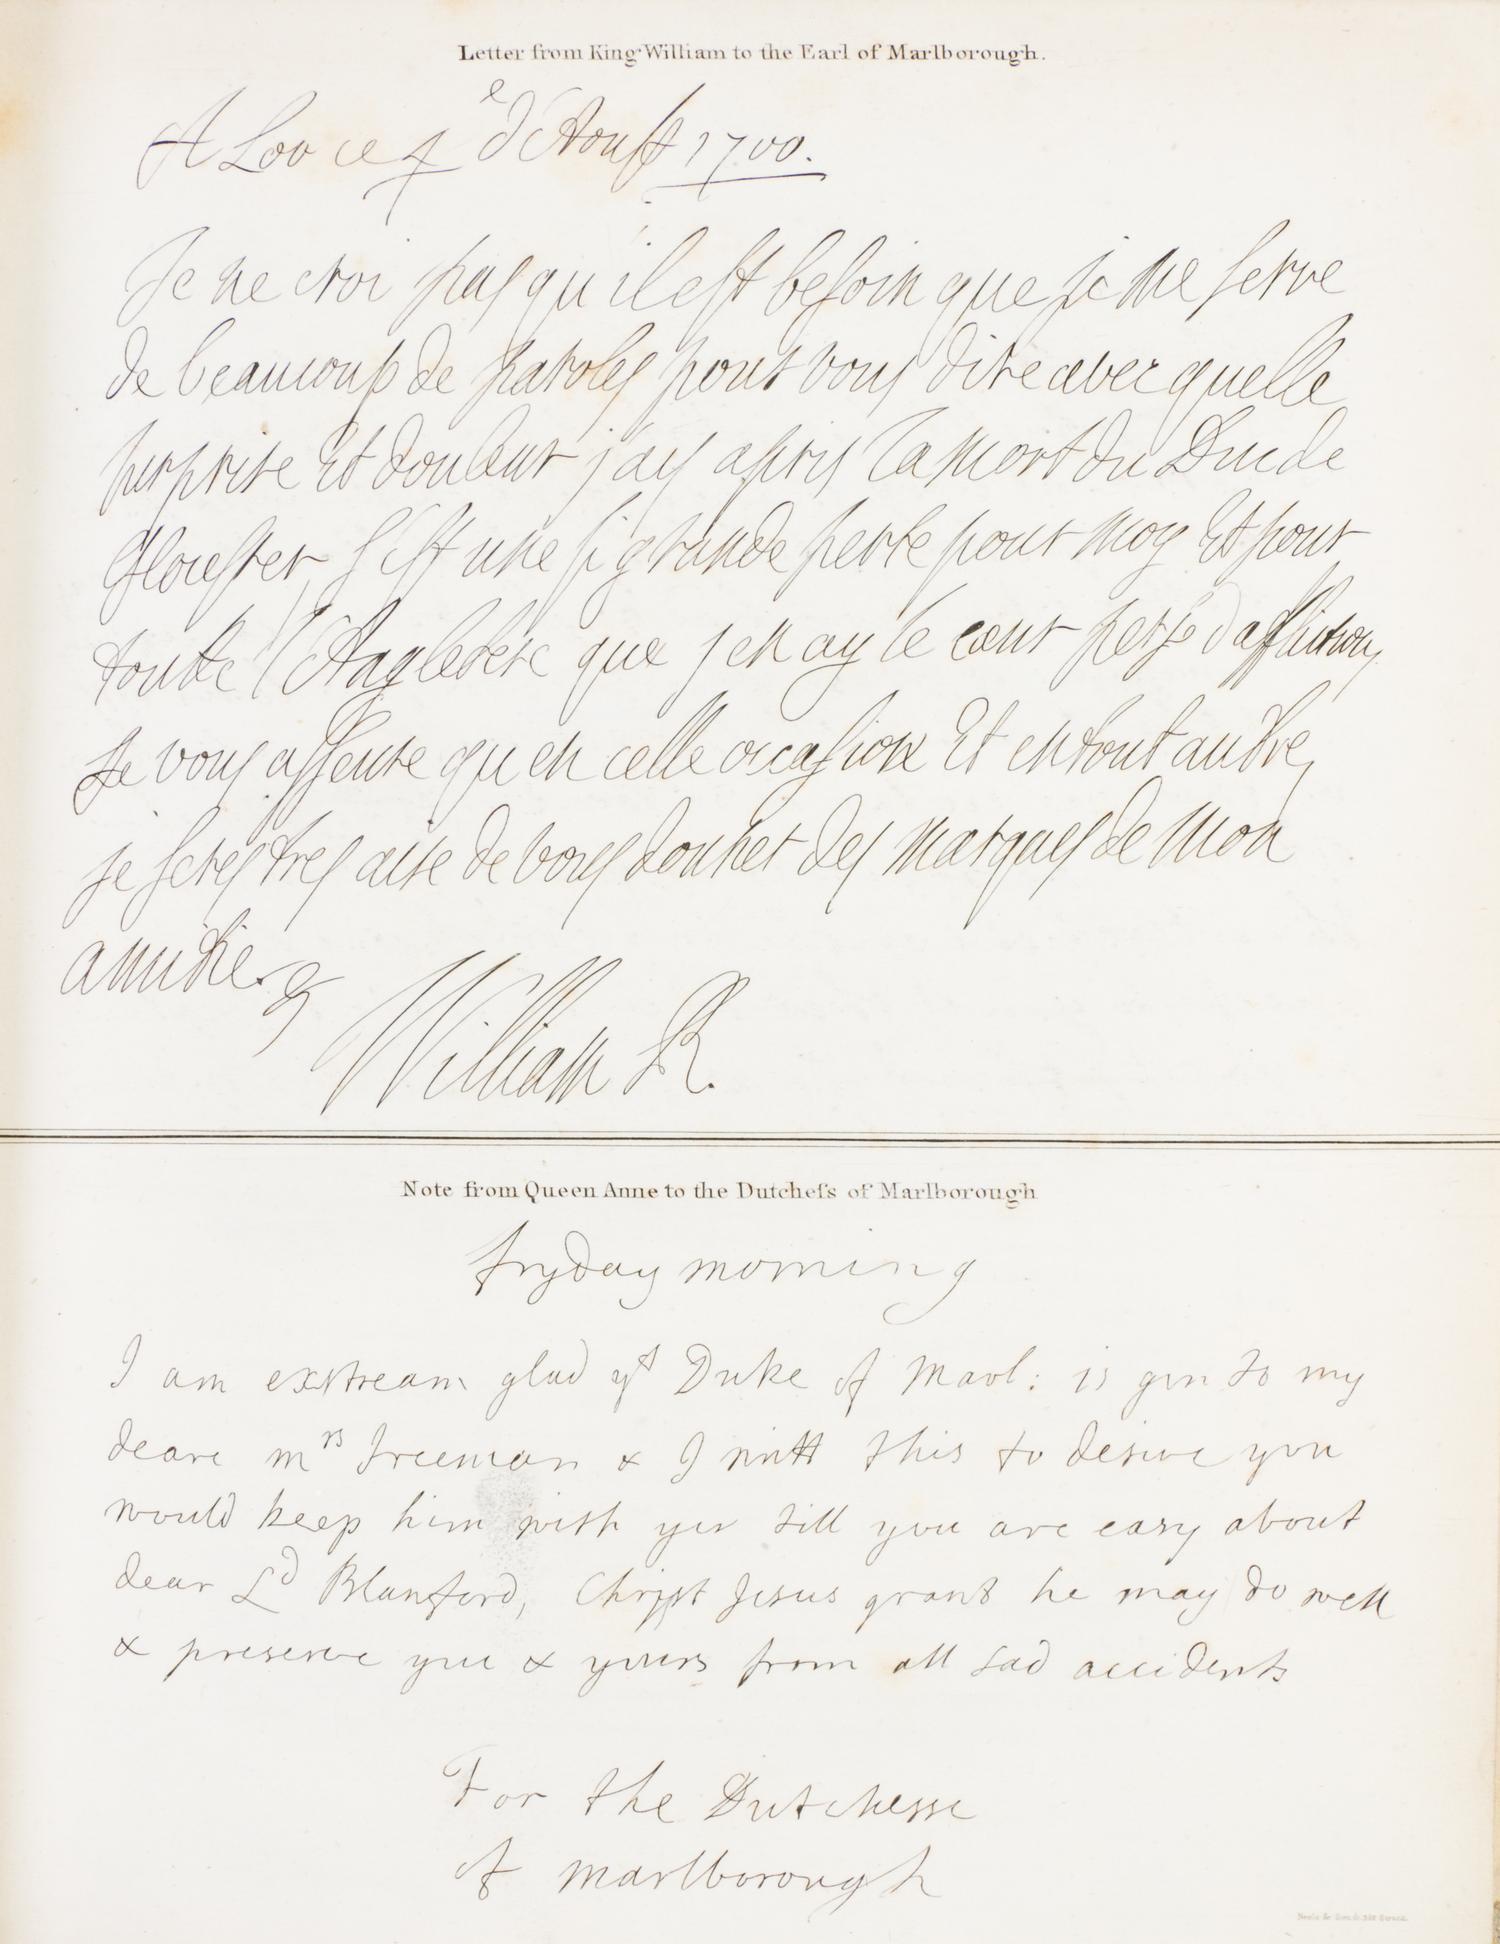 Letter from King William to the Earl of Marlborough.
A Loo ce 4e d'Aoust 1700.
Je ne croi pas qu il est besoin que je me serve
de beaucoup de paroles pour vous dire avec quelle
surprise Et douleur j'ay apris la mort du Duc de
Glocester s'est une si grande perte pour moy Et pour
toutte l'Angleterre que j en ay le cœur persé d'affliction,
Je vous asseure qu en celle occasion Et en tout autre,
je serés tres aise de vous donner des marques de mon
amitie.
William R.
Note from Queen Anne to the Dutcheſs of Marlborough
fryday morning
I am exstream glad yt Duke of Marl: is gon to my
deare mrs freeman & I writt this to desire you
would keep him with you till you are easy about
dear Ld Blanford, Christ Jesus grant he may do well
& preserve you & yours from all sad accidents
For the Dutchesse
of Marlborough